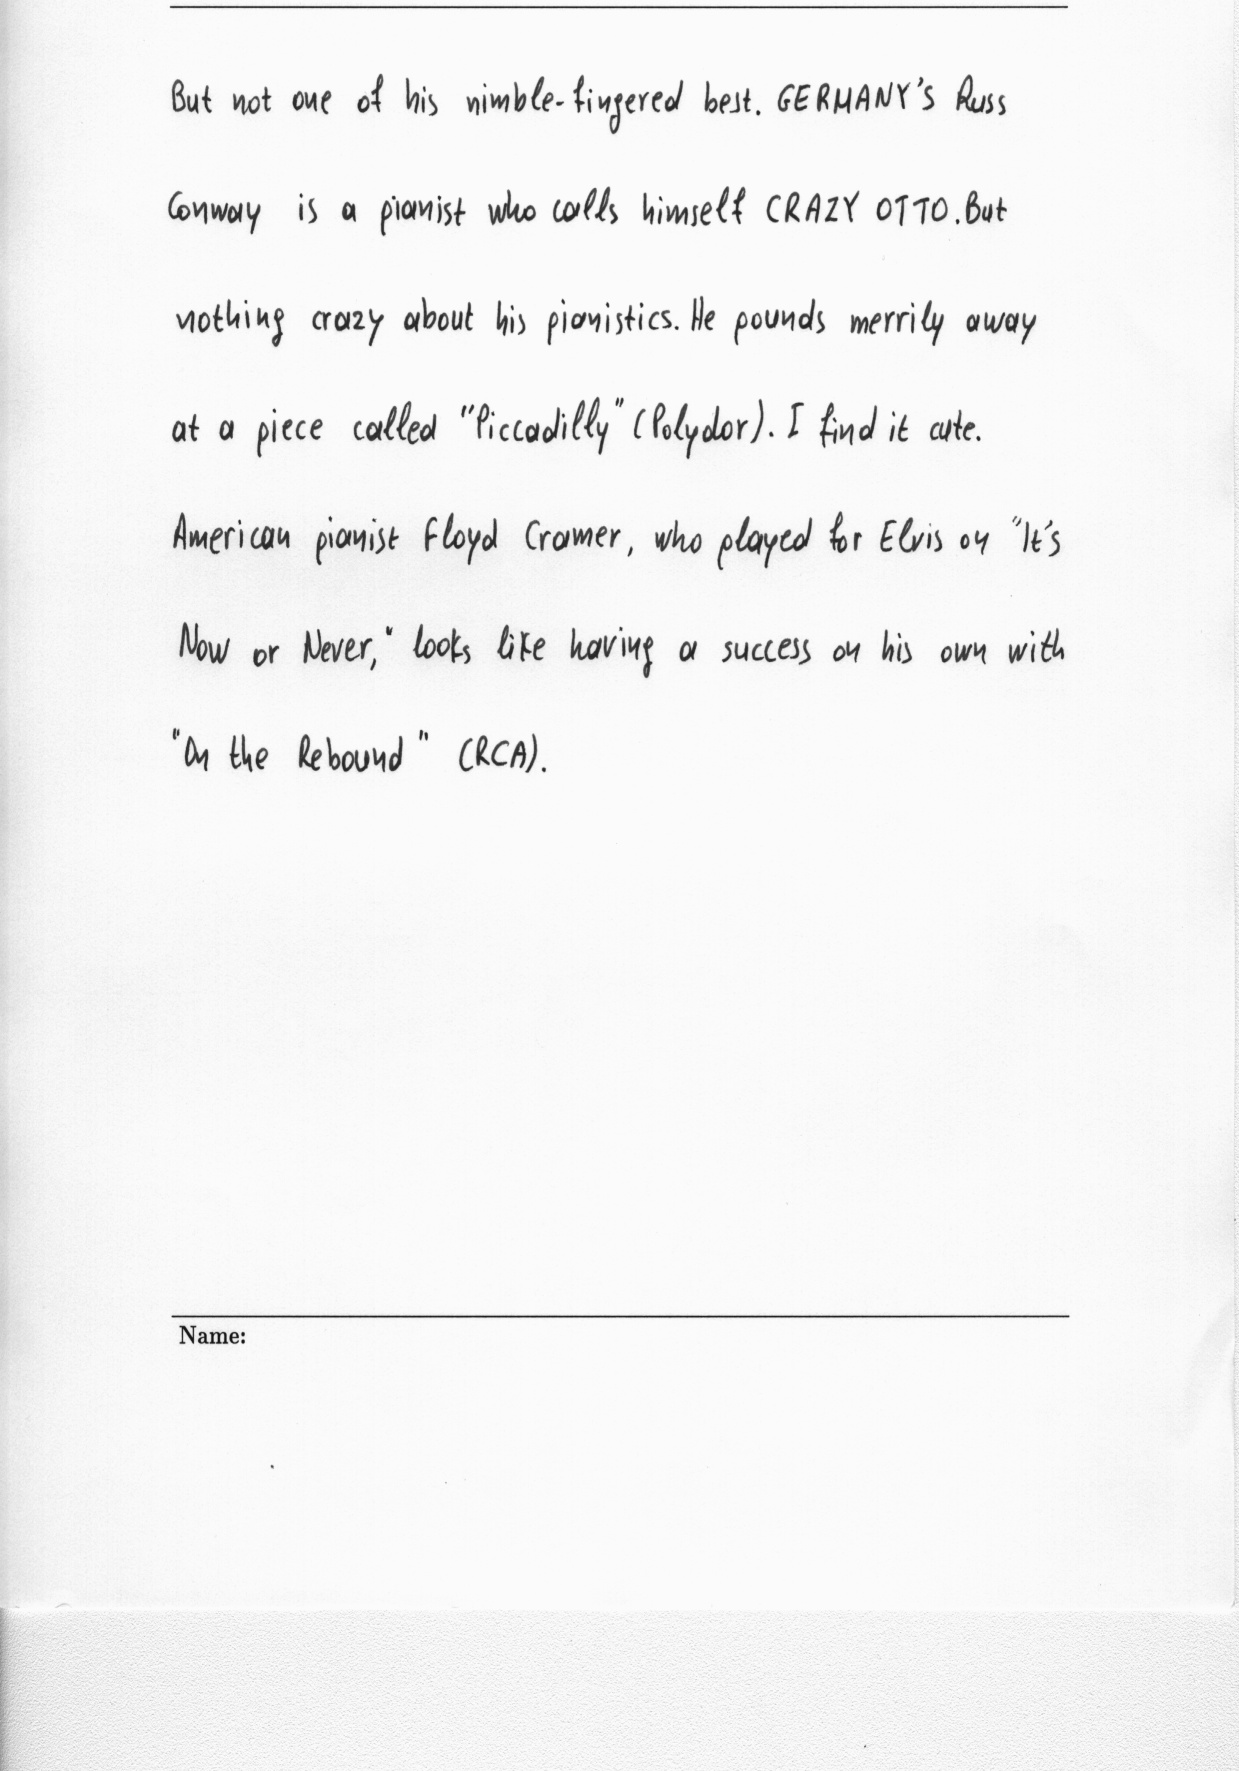 But not one of his nimble-fingered best. GERMANY'S Russ
Conway is a pianist who calls himself CRAZY OTTO. But
nothing crazy about his pianistics. He pounds merrily away
at a piece called "Piccadilly" (Polydor). I find it cute.
American pianist Floyd Cramer, who played for Elvis on "It's
Now or Never," looks like having a success on his own with
"On the Rebound" (RCA).
Name: